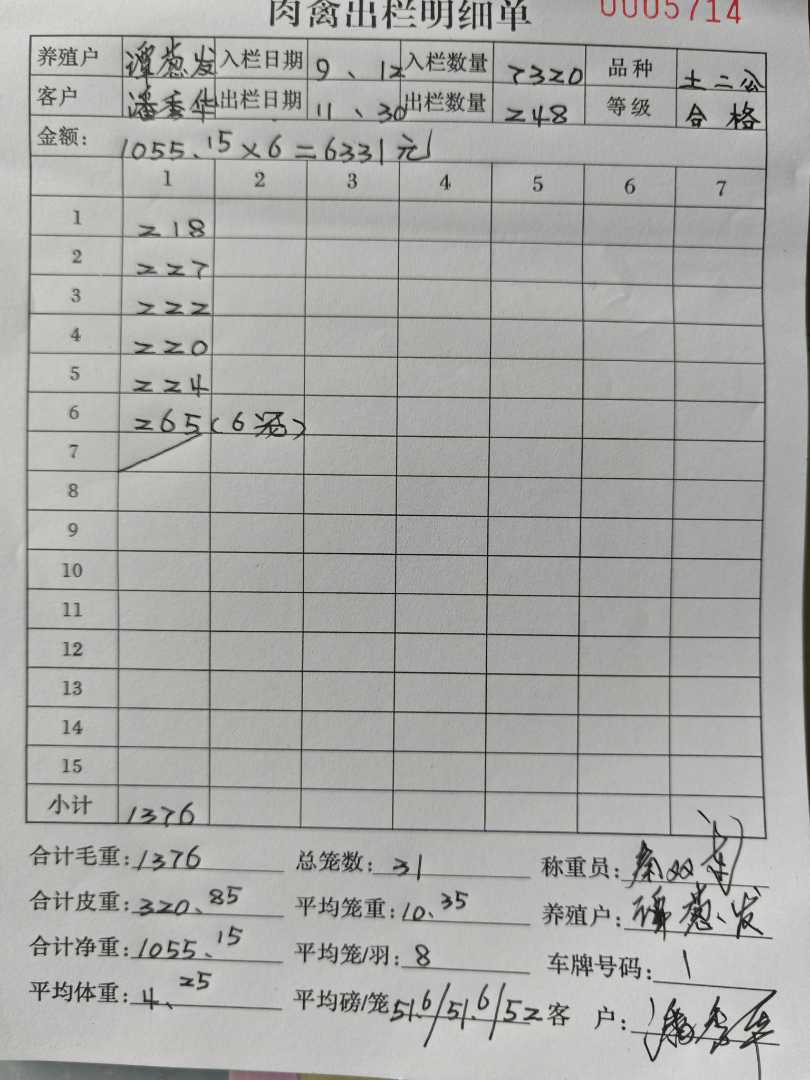 肉禽出栏明细单 0005714
养殖户 谭葱发 入栏日期 9、12 入栏数量 7320 品种 土二公
客户 潘秀华 出栏日期 11、30 出栏数量 248 等级 合格
金额: 1055.15×6=6331元
1 2 3 4 5 6 7
1 218
2 227
3 222
4 220
5 224
6 265(6笼)
7
8
9
10
11
12
13
14
15
小计 1376
合计毛重: 1376 总笼数: 31 称重员:
合计皮重: 320.85 平均笼重: 10.35 养殖户: 谭葱发
合计净重: 1055.15 平均笼/羽: 8 车牌号码: 1
平均体重: 4.25 平均磅/笼 51.6/51.6/52 客 户: 潘秀华